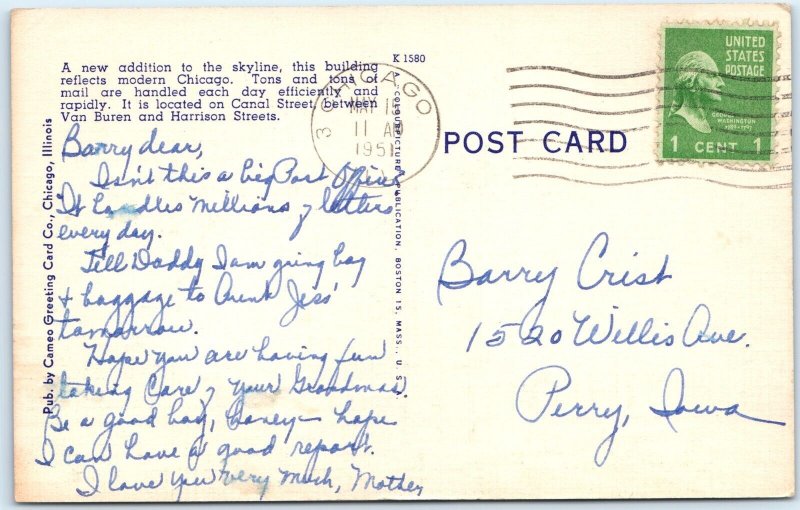 A new addition to the skyline, this building
reflects modern Chicago. Tons and tons of
mail are handled each day efficiently and
rapidly. It is located on Canal Street, between
Van Buren and Harrison Streets.
K 1580
Pub. by Cameo Greeting Card Co., Chicago, Illinois
A "COLOURPICTURE" PUBLICATION, BOSTON 15, MASS., U.S.A.
Barry dear,
Isn't this a big Post Office
It handles millions of letters
every day.
Tell Daddy I am going bag
+ baggage to Aunt Jess'
tomorrow.
Hope you are having fun
taking care of your Grandma.
Be a good boy, honey - hope
I can have a good report.
I love you very much, Mother
CHICAGO
3
MAY
11 AM
1951
POST CARD
UNITED
STATES
POSTAGE
GEORGE
WASHINGTON
1789-1797
1 CENT 1
Barry Crist
1520 Willis Ave.
Perry, Iowa